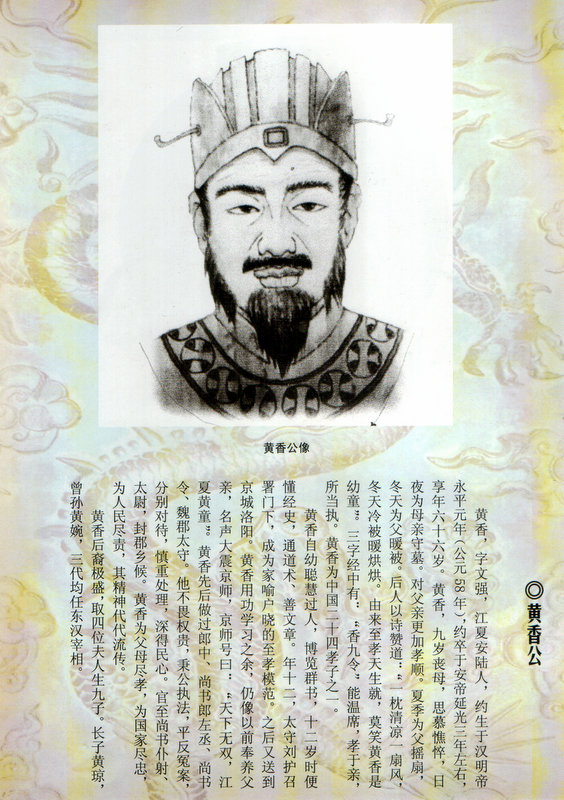 黄香公像
◎黄香公
黄香，字文强，江夏安陆人，约生于汉明帝
永平元年（公元58年），约卒于安帝延光二年左右，
享年六十六岁。黄香，九岁丧母，思慕憔悴，日
夜为母亲守墓。对父亲更加孝顺。夏季为父摇扇，
冬天为父暖被。后人以诗赞道：“一枕清凉一扇风，
冬天冷被暖烘烘。由来至孝天生就，莫笑黄香是
幼童”三字经中有：“香九令”能温席，孝于亲，
所当执。黄香为中国二十四孝子之一。
黄香自幼聪慧过人，博览群书，十二岁时便
懂经史，通道术、善文章。年十二，太守刘护召
署门下，成为家喻户晓的至孝模范。之后又送到
京城洛阳。黄香用功学习之余，仍像以前奉养父
亲，名声大震京师，京师号曰：“天下无双，江
夏黄童”。黄香先后做过郎中、尚书郎左丞、尚书
令、魏郡太守。他不畏权贵，秉公执法，平反冤案，
分别对待，慎重处理，深得民心。官至尚书仆射、
太尉，封郡乡候。黄香为父母尽孝，为国家尽忠，
为人民尽责，其精神代代流传。
黄香后裔极盛，取四位夫人生九子。长子黄琼，
曾孙黄婉，三代均任东汉宰相。